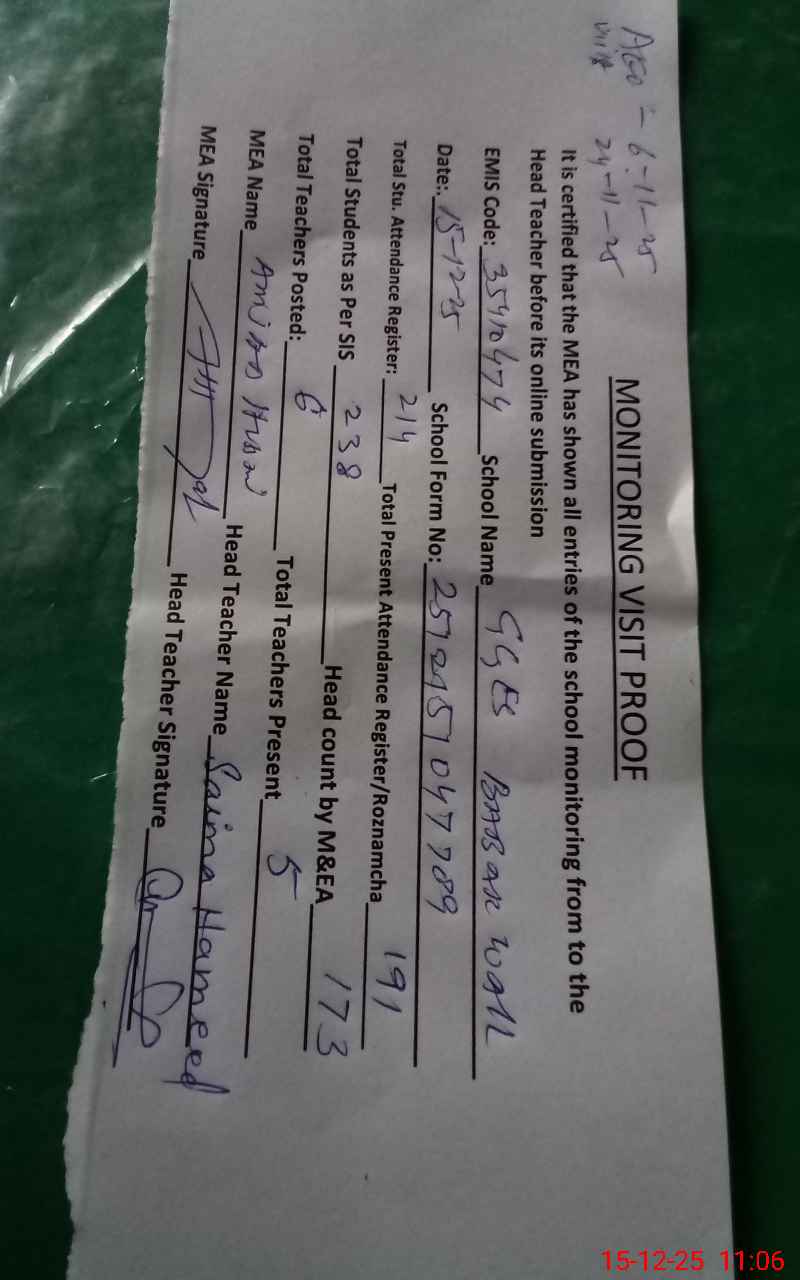 AEO - 6-11-25
visit 24-11-25
MONITORING VISIT PROOF
It is certified that the MEA has shown all entries of the school monitoring from to the
Head Teacher before its online submission
EMIS Code: 35410474 School Name GGES BABAK WALL
Date:. 15-12-25 School Form No:
Total Stu. Attendance Register: 214 Total Present Attendance Register/Roznamcha 191
Total Students as Per SIS 238 Head count by M&EA 173
Total Teachers Posted: 6 Total Teachers Present 5
MEA Name Head Teacher Name Saima Hameed
MEA Signature Head Teacher Signature
15-12-25 11:06